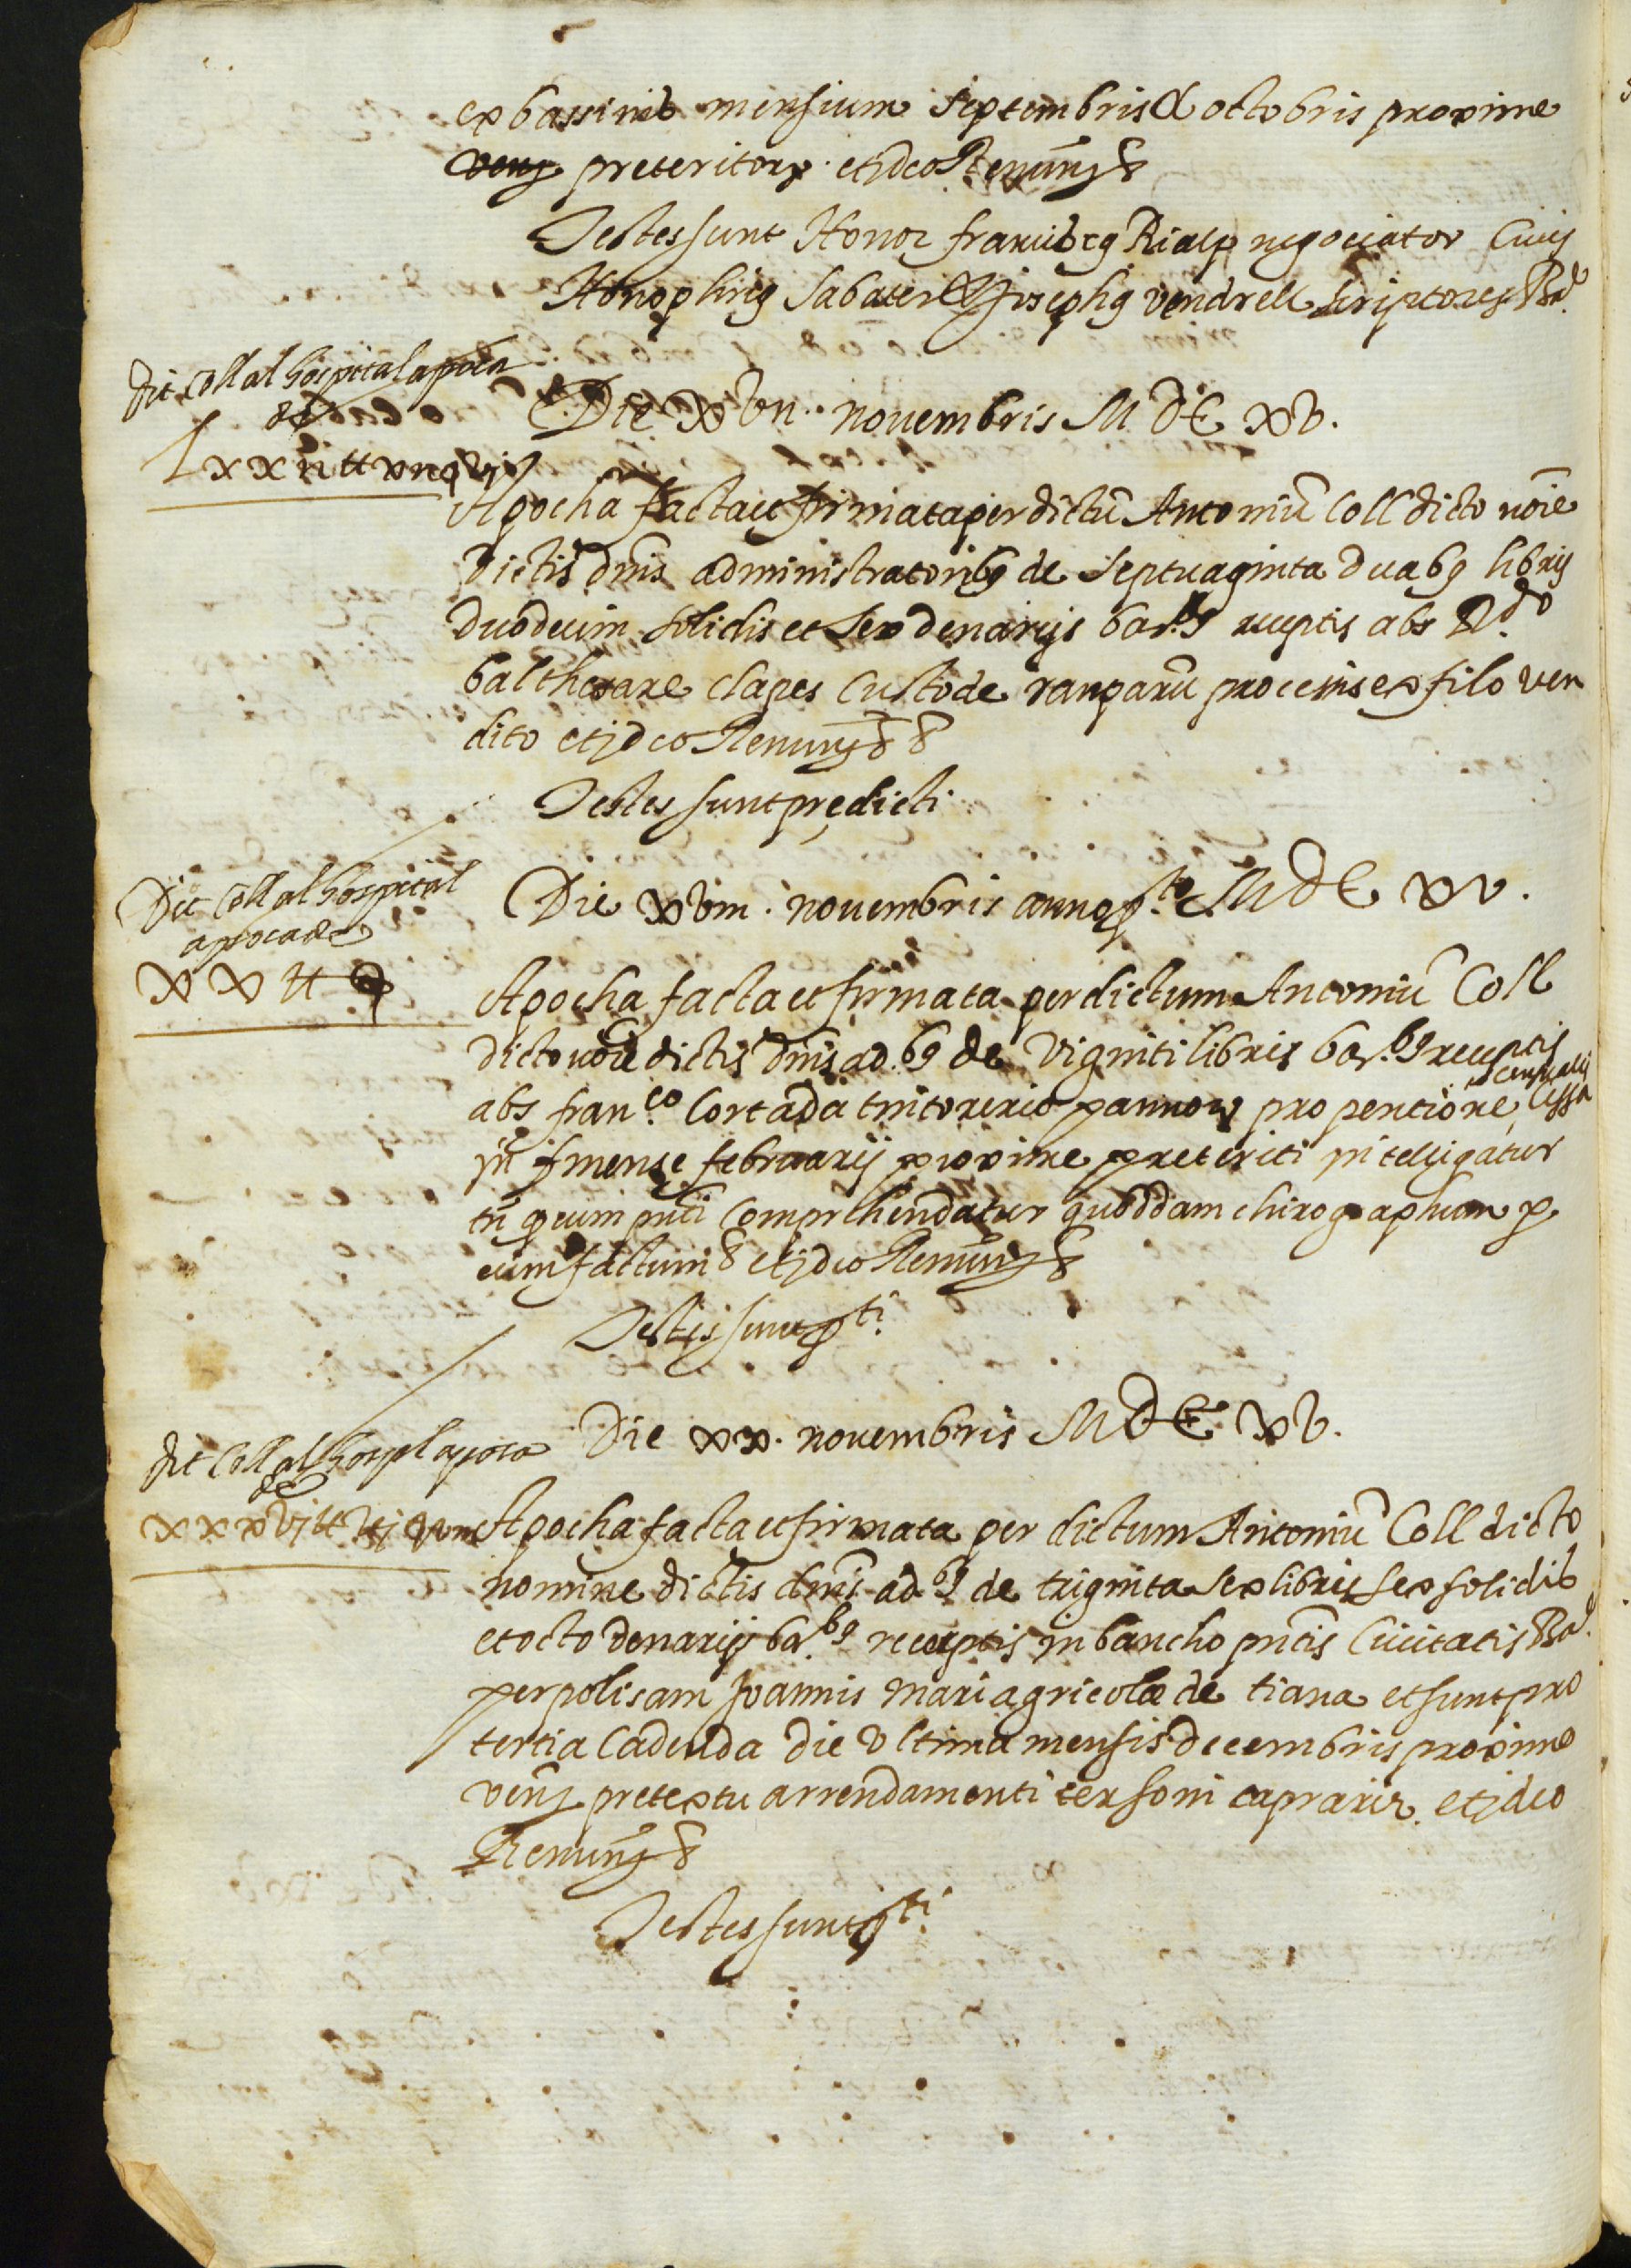 ex bassinis mensium septembris & octobris proxime
venȝ preteritorȝ. et ideo Renunȝ &
Testes sunt Honor franciscꝯ Rialp negociator Civis
Honophriꝯ Sabater & Josephꝯ vendrell scriptores Barᵉ
dit Coll al hospital apoca
de
Lxxii ₶ xii ꝯ vj
Die xvii. novembris M DC xv.
Apocha facta et firmata per dictū Antoniū Coll dicto noīe
dictis dnīs administratoribꝯ de septuaginta duabꝯ libris
duodecim solidis et sex denarijs bar.bꝯ receptis abs R.do
balthezare clapes Custode rauparū procesis ex filo ven
dito et ideo Renunȝ & &
Testes sunt predicti
Dit Coll al hospital
apoca de
xx ₶ ꝯ
Die xviii. novembris anno p.to M DC xv.
Apocha facta et firmata per dictum Antoniū Coll
dicto noīe dictis dnīs ad.bꝯ de viginti libris bar.bꝯ receptis
abs fran.co Cortada tintorerio pannorȝ pro pentione, censualis cessa
in mense februarij proxime preteriti intelligatur
tn̄ qeum pnti comprehendatur quoddam chirographum p
eum factum & et ideo Renunȝ &
Testes sunt p.ti
dit Coll al hospl apoca
de
xxxvj ₶ vj ꝯ viii
Die xx. novembris M DC xv.
Apocha facta et firmata per dictum Antoniū Coll dicto
nomine dictis dnīs ad.bꝯ de triginta sex libris sex solidis
et octo denarijs bar.bꝯ receptis in bancho pn̄tis Civitatis Barᵉ
per polisam Joannis mari agricolæ de tiana et sunt pro
tertia cadenda die ultima mensis decembris proxime
venȝ pretextu arrendamenti tersoni caprariȝ. et ideo
Renunȝ &
Testes sunt p.ti